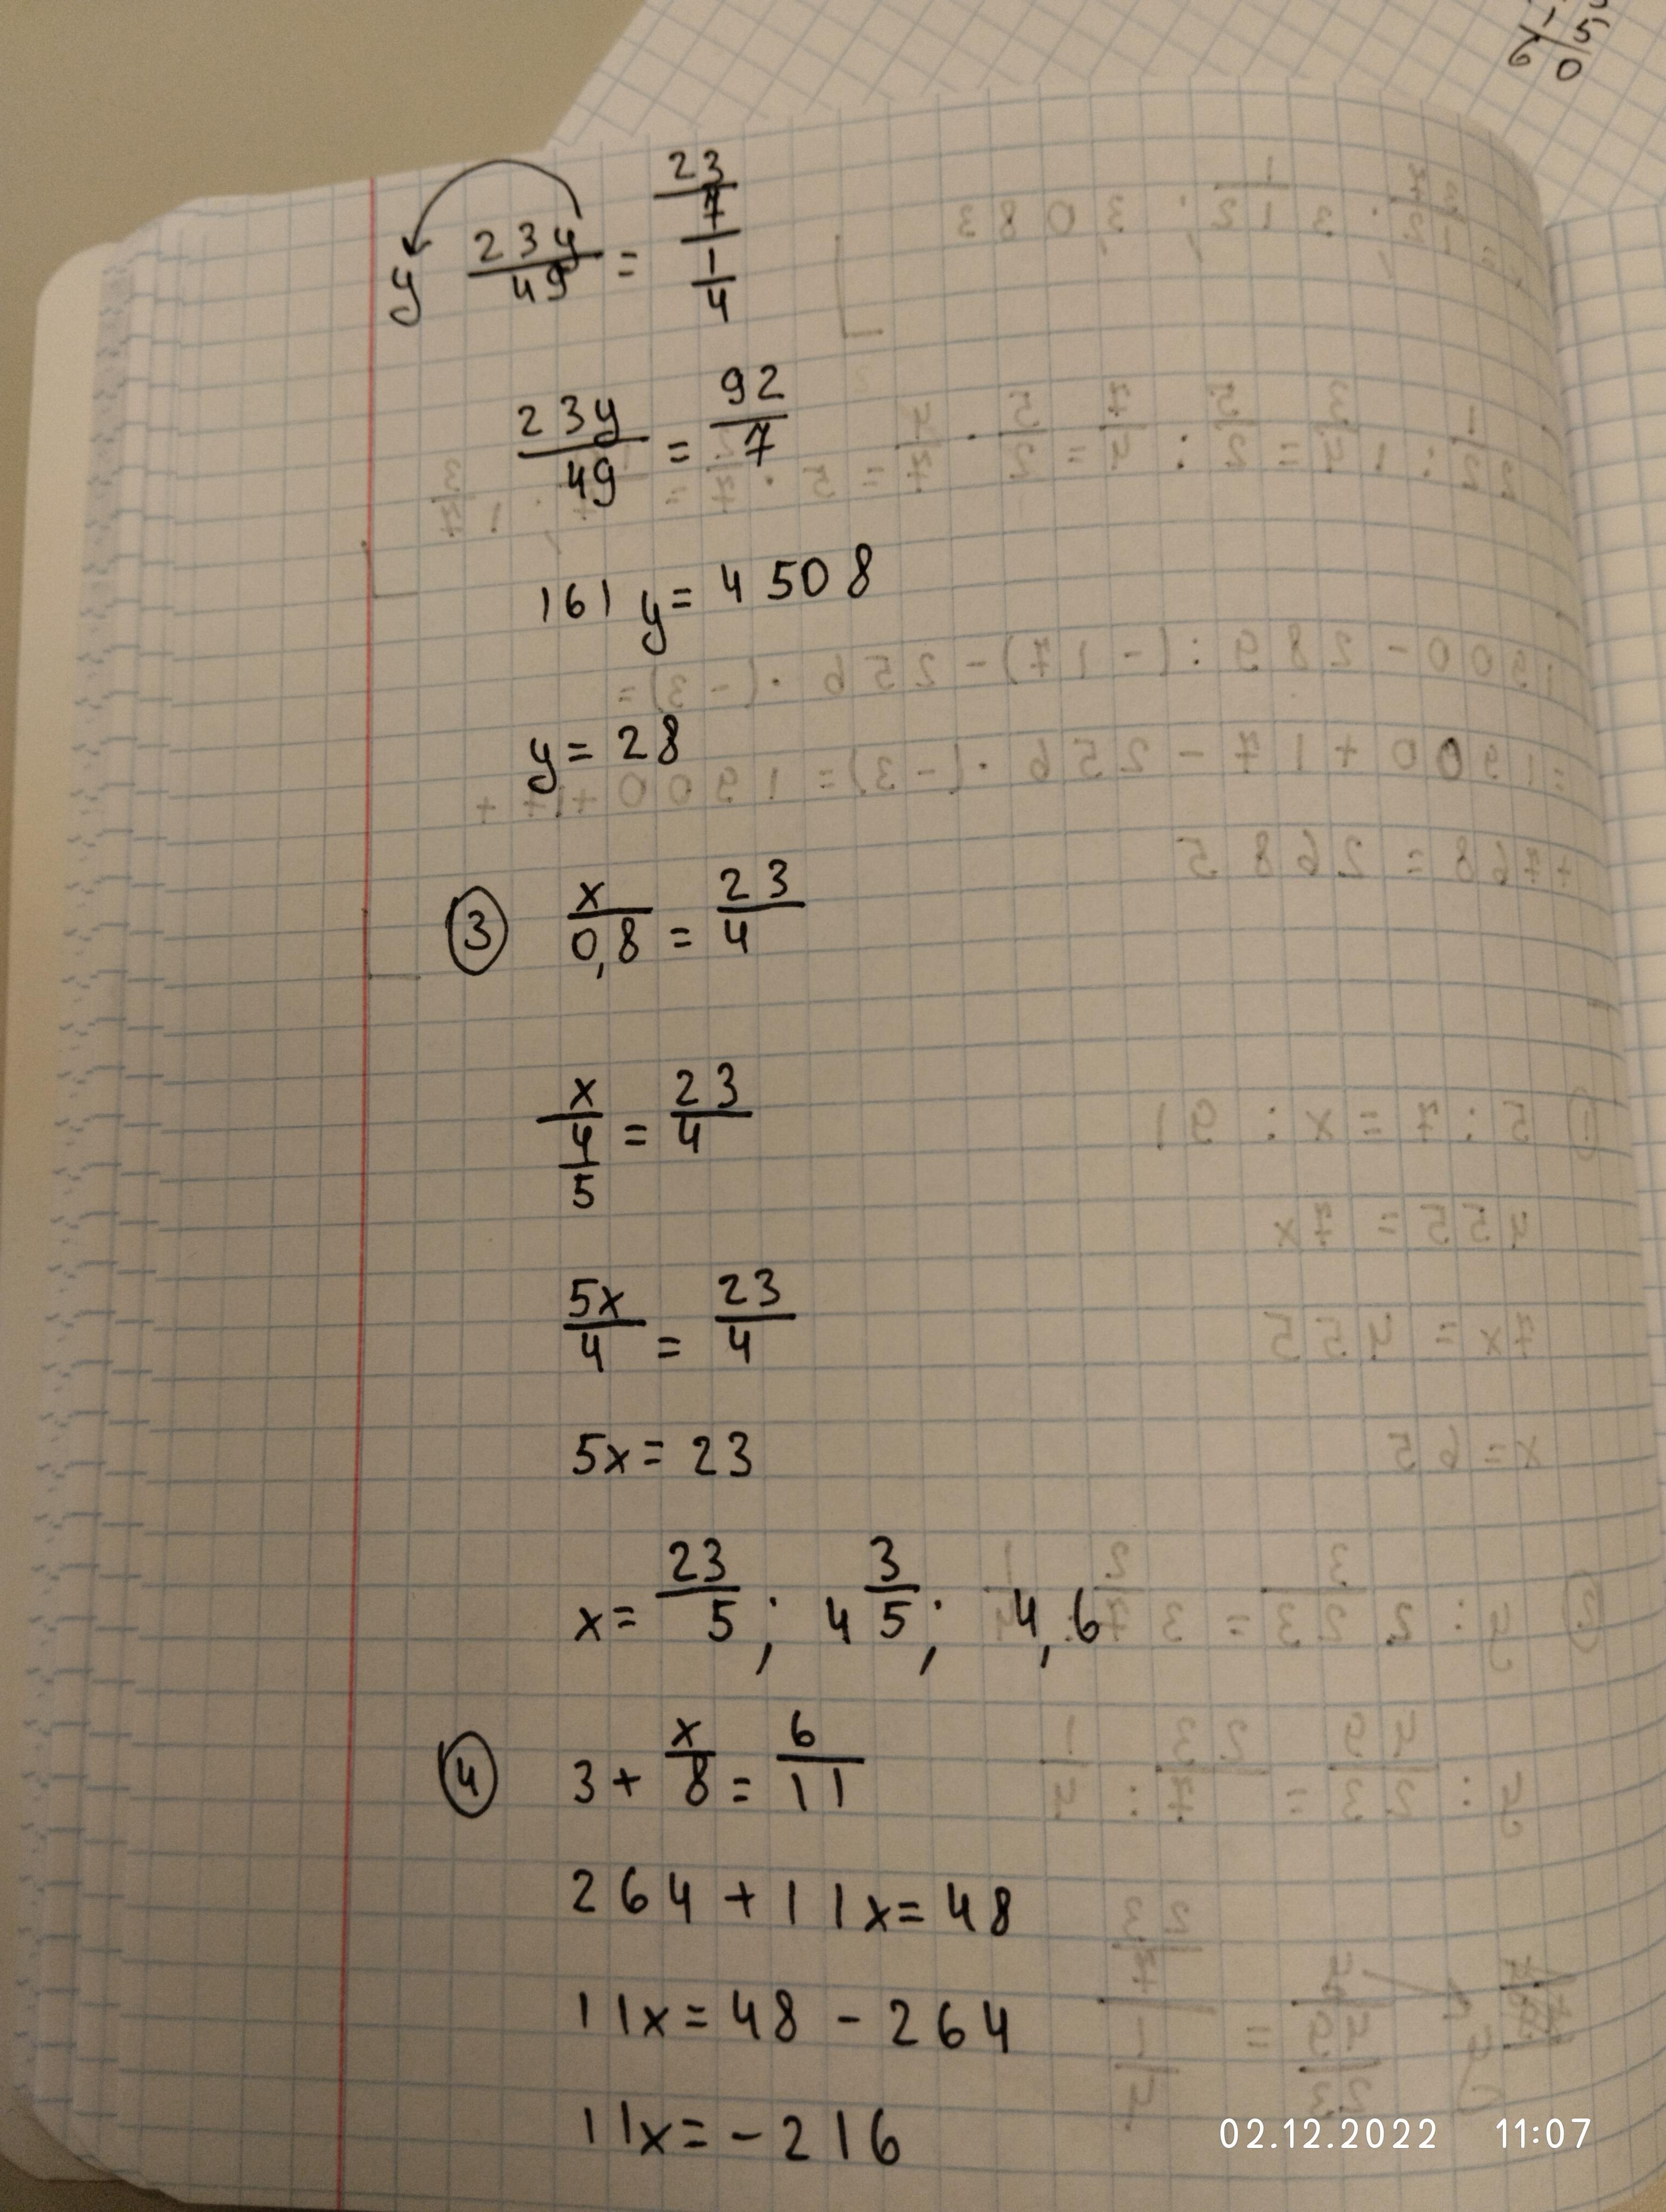 y 23y/49 = 23/7 / 1/4
23y/49 = 92/7
161y = 4508
y = 28
③ x/0,8 = 23/4
x / 4/5 = 23/4
5x/4 = 23/4
5x = 23
x = 23/5; 4 3/5; 4,6
④ 3 + x/8 = 6/11
264 + 11x = 48
11x = 48 - 264
11x = -216
02.12.2022 11:07